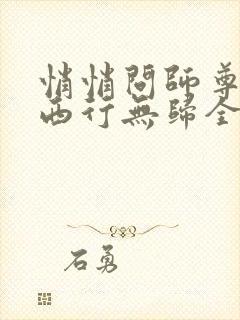 悄悄問師尊
西行無歸全
石勇